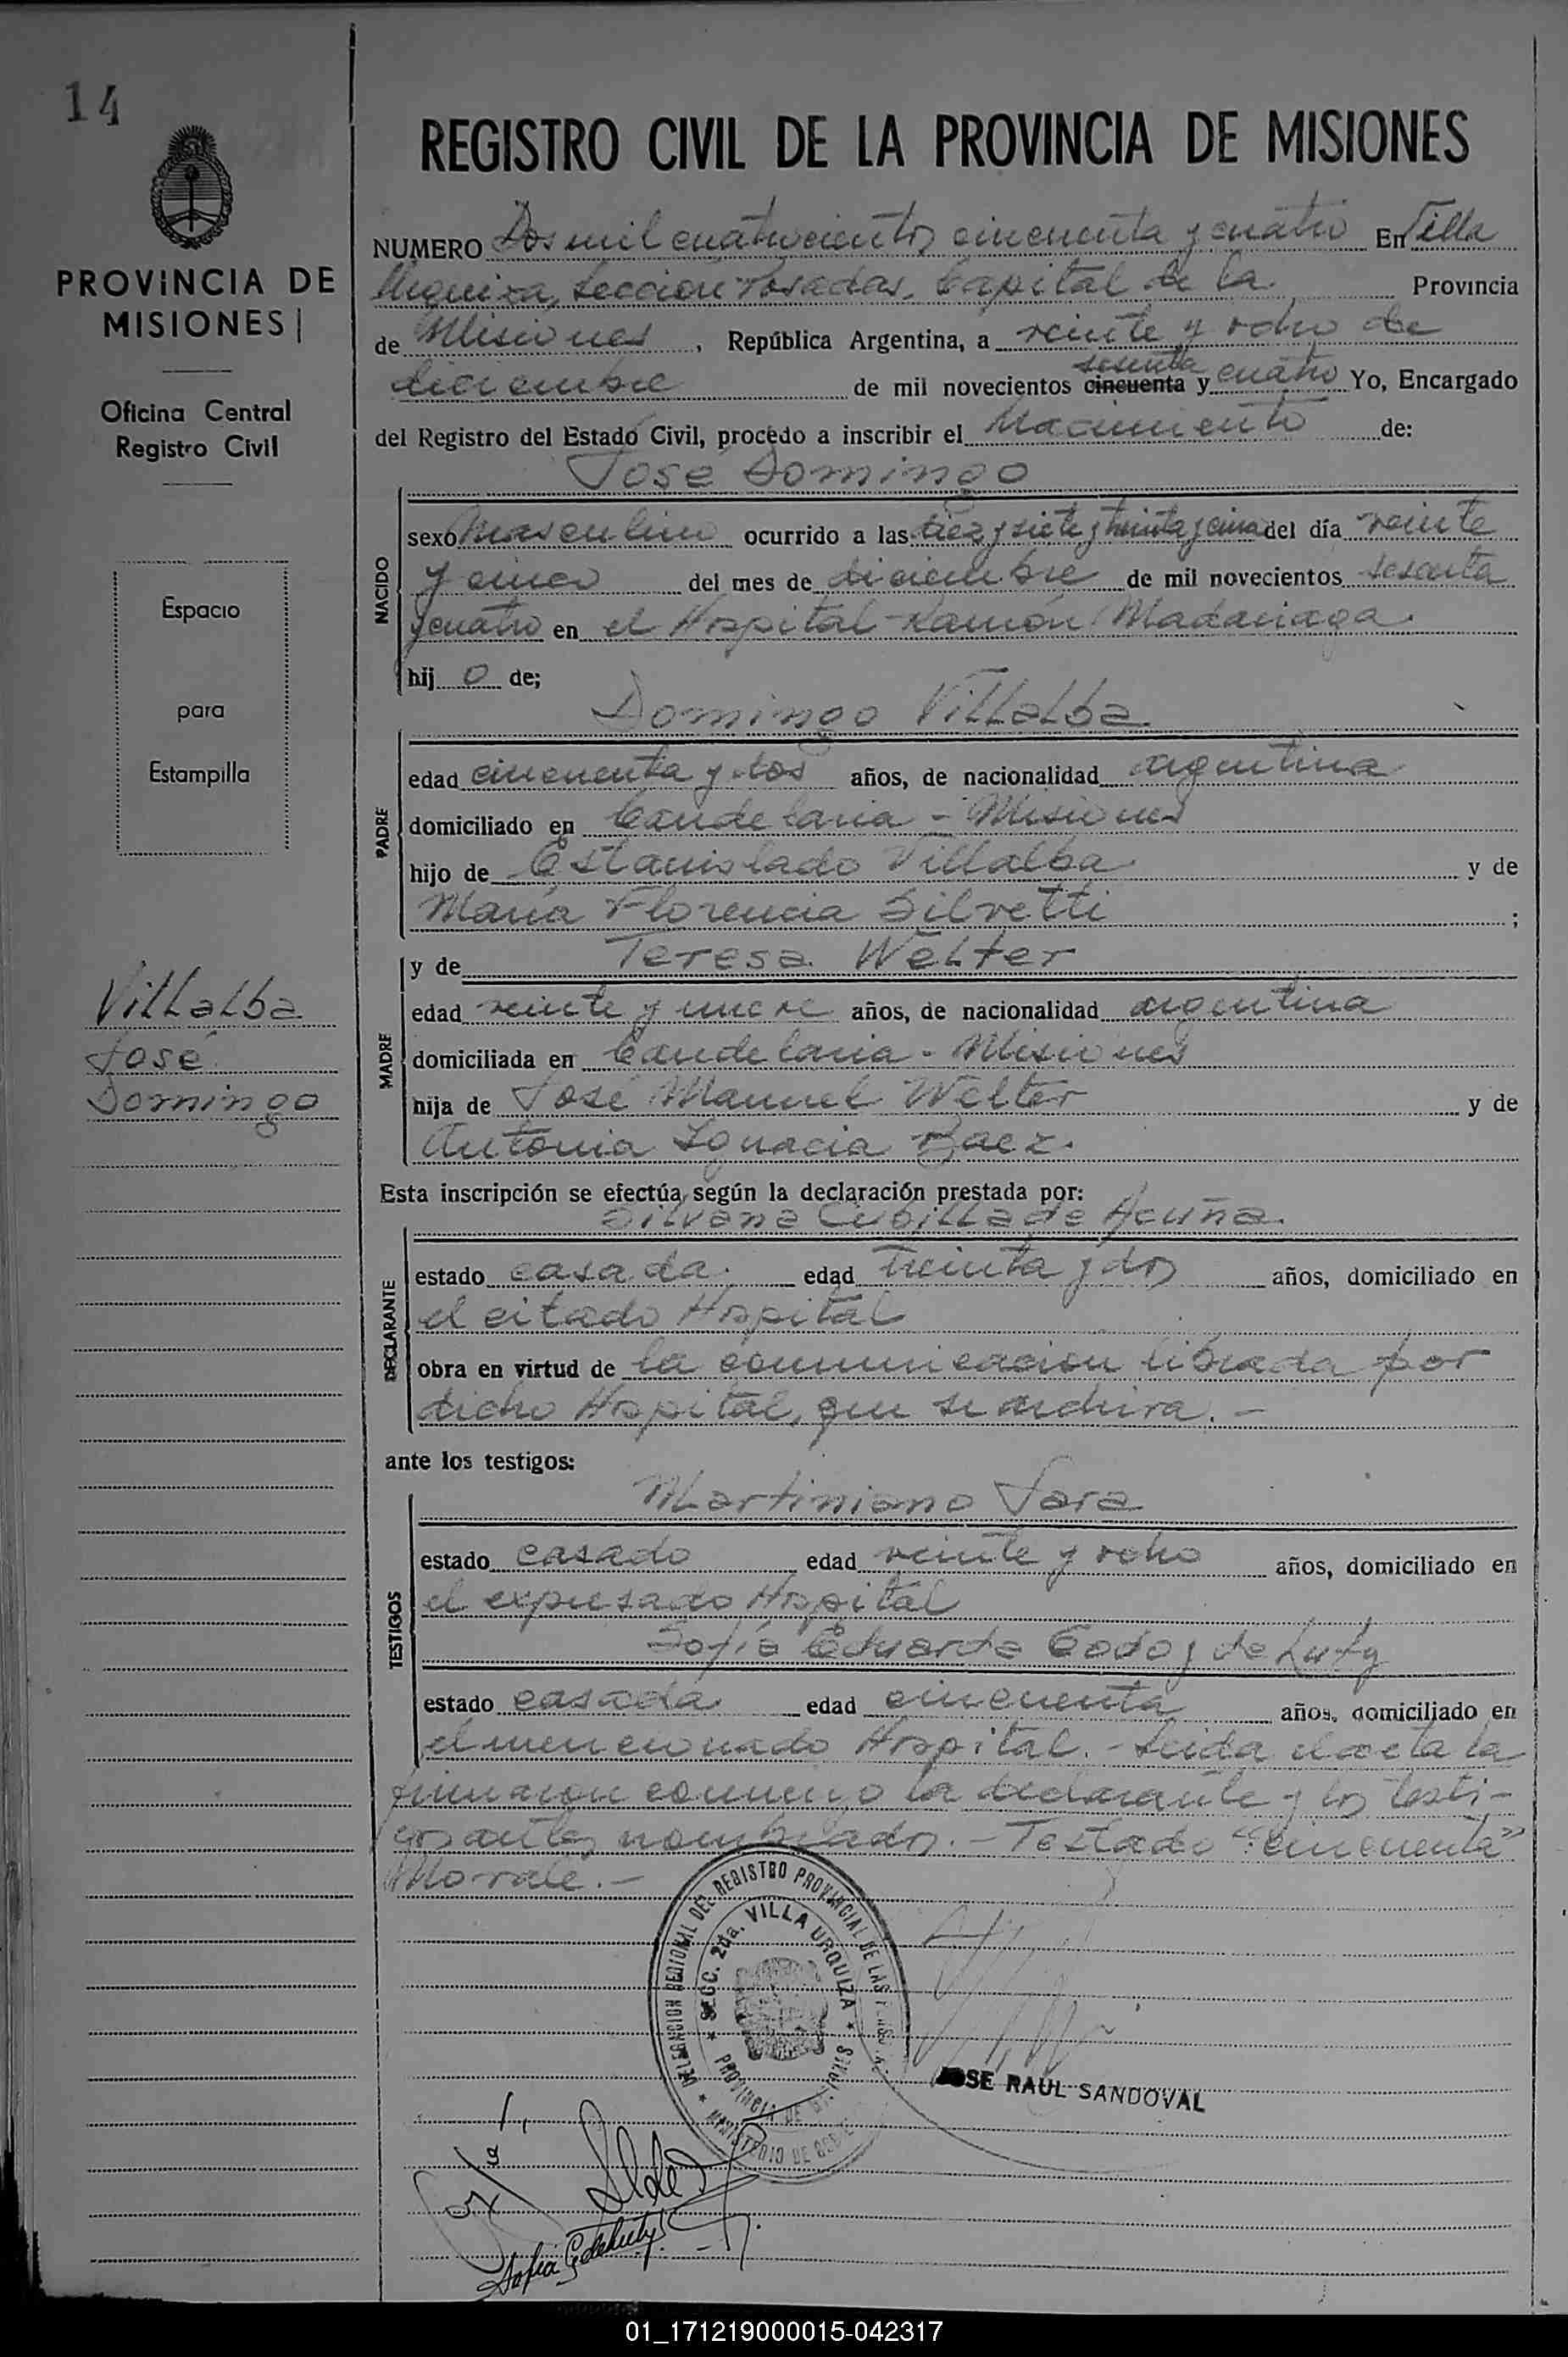 14
PROVINCIA DE
MISIONES
Oficina Central
Registro Civil
Espacio
para
Estampilla
Villalba
José
Domingo
REGISTRO CIVIL DE LA PROVINCIA DE MISIONES
NUMERO Dos mil cuatrocientos cincuenta y cuatro En Villa
Urquiza, Sección Posadas, Capital de la Provincia
de Misiones, República Argentina, a veinte y ocho de
diciembre de mil novecientos cincuenta sesenta y cuatro Yo, Encargado
del Registro del Estado Civil, procedo a inscribir el Nacimiento de:
José Domingo
NACIDO
sexo Masculino ocurrido a las diez y siete y treinta y cinco del día veinte
y cinco del mes de diciembre de mil novecientos sesenta
y cuatro en el Hospital Ramón Madariaga.
hij o de;
Domingo Villalba
PADRE
edad cincuenta y dos años, de nacionalidad argentina
domiciliado en Candelaria - Misiones
hijo de Estanislado Villalba y de
María Florencia Silvetti ;
y de Teresa Welter
MADRE
edad veinte y nueve años, de nacionalidad argentina
domiciliada en Candelaria - Misiones
hija de José Manuel Welter y de
Antonia Ignacia Baez.
Esta inscripción se efectúa según la declaración prestada por:
Silvana Cubilla de Acuña.
DECLARANTE
estado casada. edad treinta y dos años, domiciliado en
el citado Hospital
obra en virtud de la comunicacion librada por
dicho Hospital, que se archiva. -
ante los testigos:
Martiniano Jara
TESTIGOS
estado casado edad veinte y ocho años, domiciliado en
el expresado Hospital
Sofía Eduarda Godoy de Luty
estado casada edad cincuenta años, domiciliado en
el mencionado Hospital. - Leida el acta la
firmaron conmigo la declarante y los testi-
gos antes nombrados. - Testado "cincuenta"
No vale. -
DELEGACION REGIONAL DEL REGISTRO PROVINCIAL DE LAS
SECC. 2da. VILLA URQUIZA
PROVINCIA DE
MINISTERIO DE
JOSE RAUL SANDOVAL
Sofia G de Luty
01_171219000015-042317